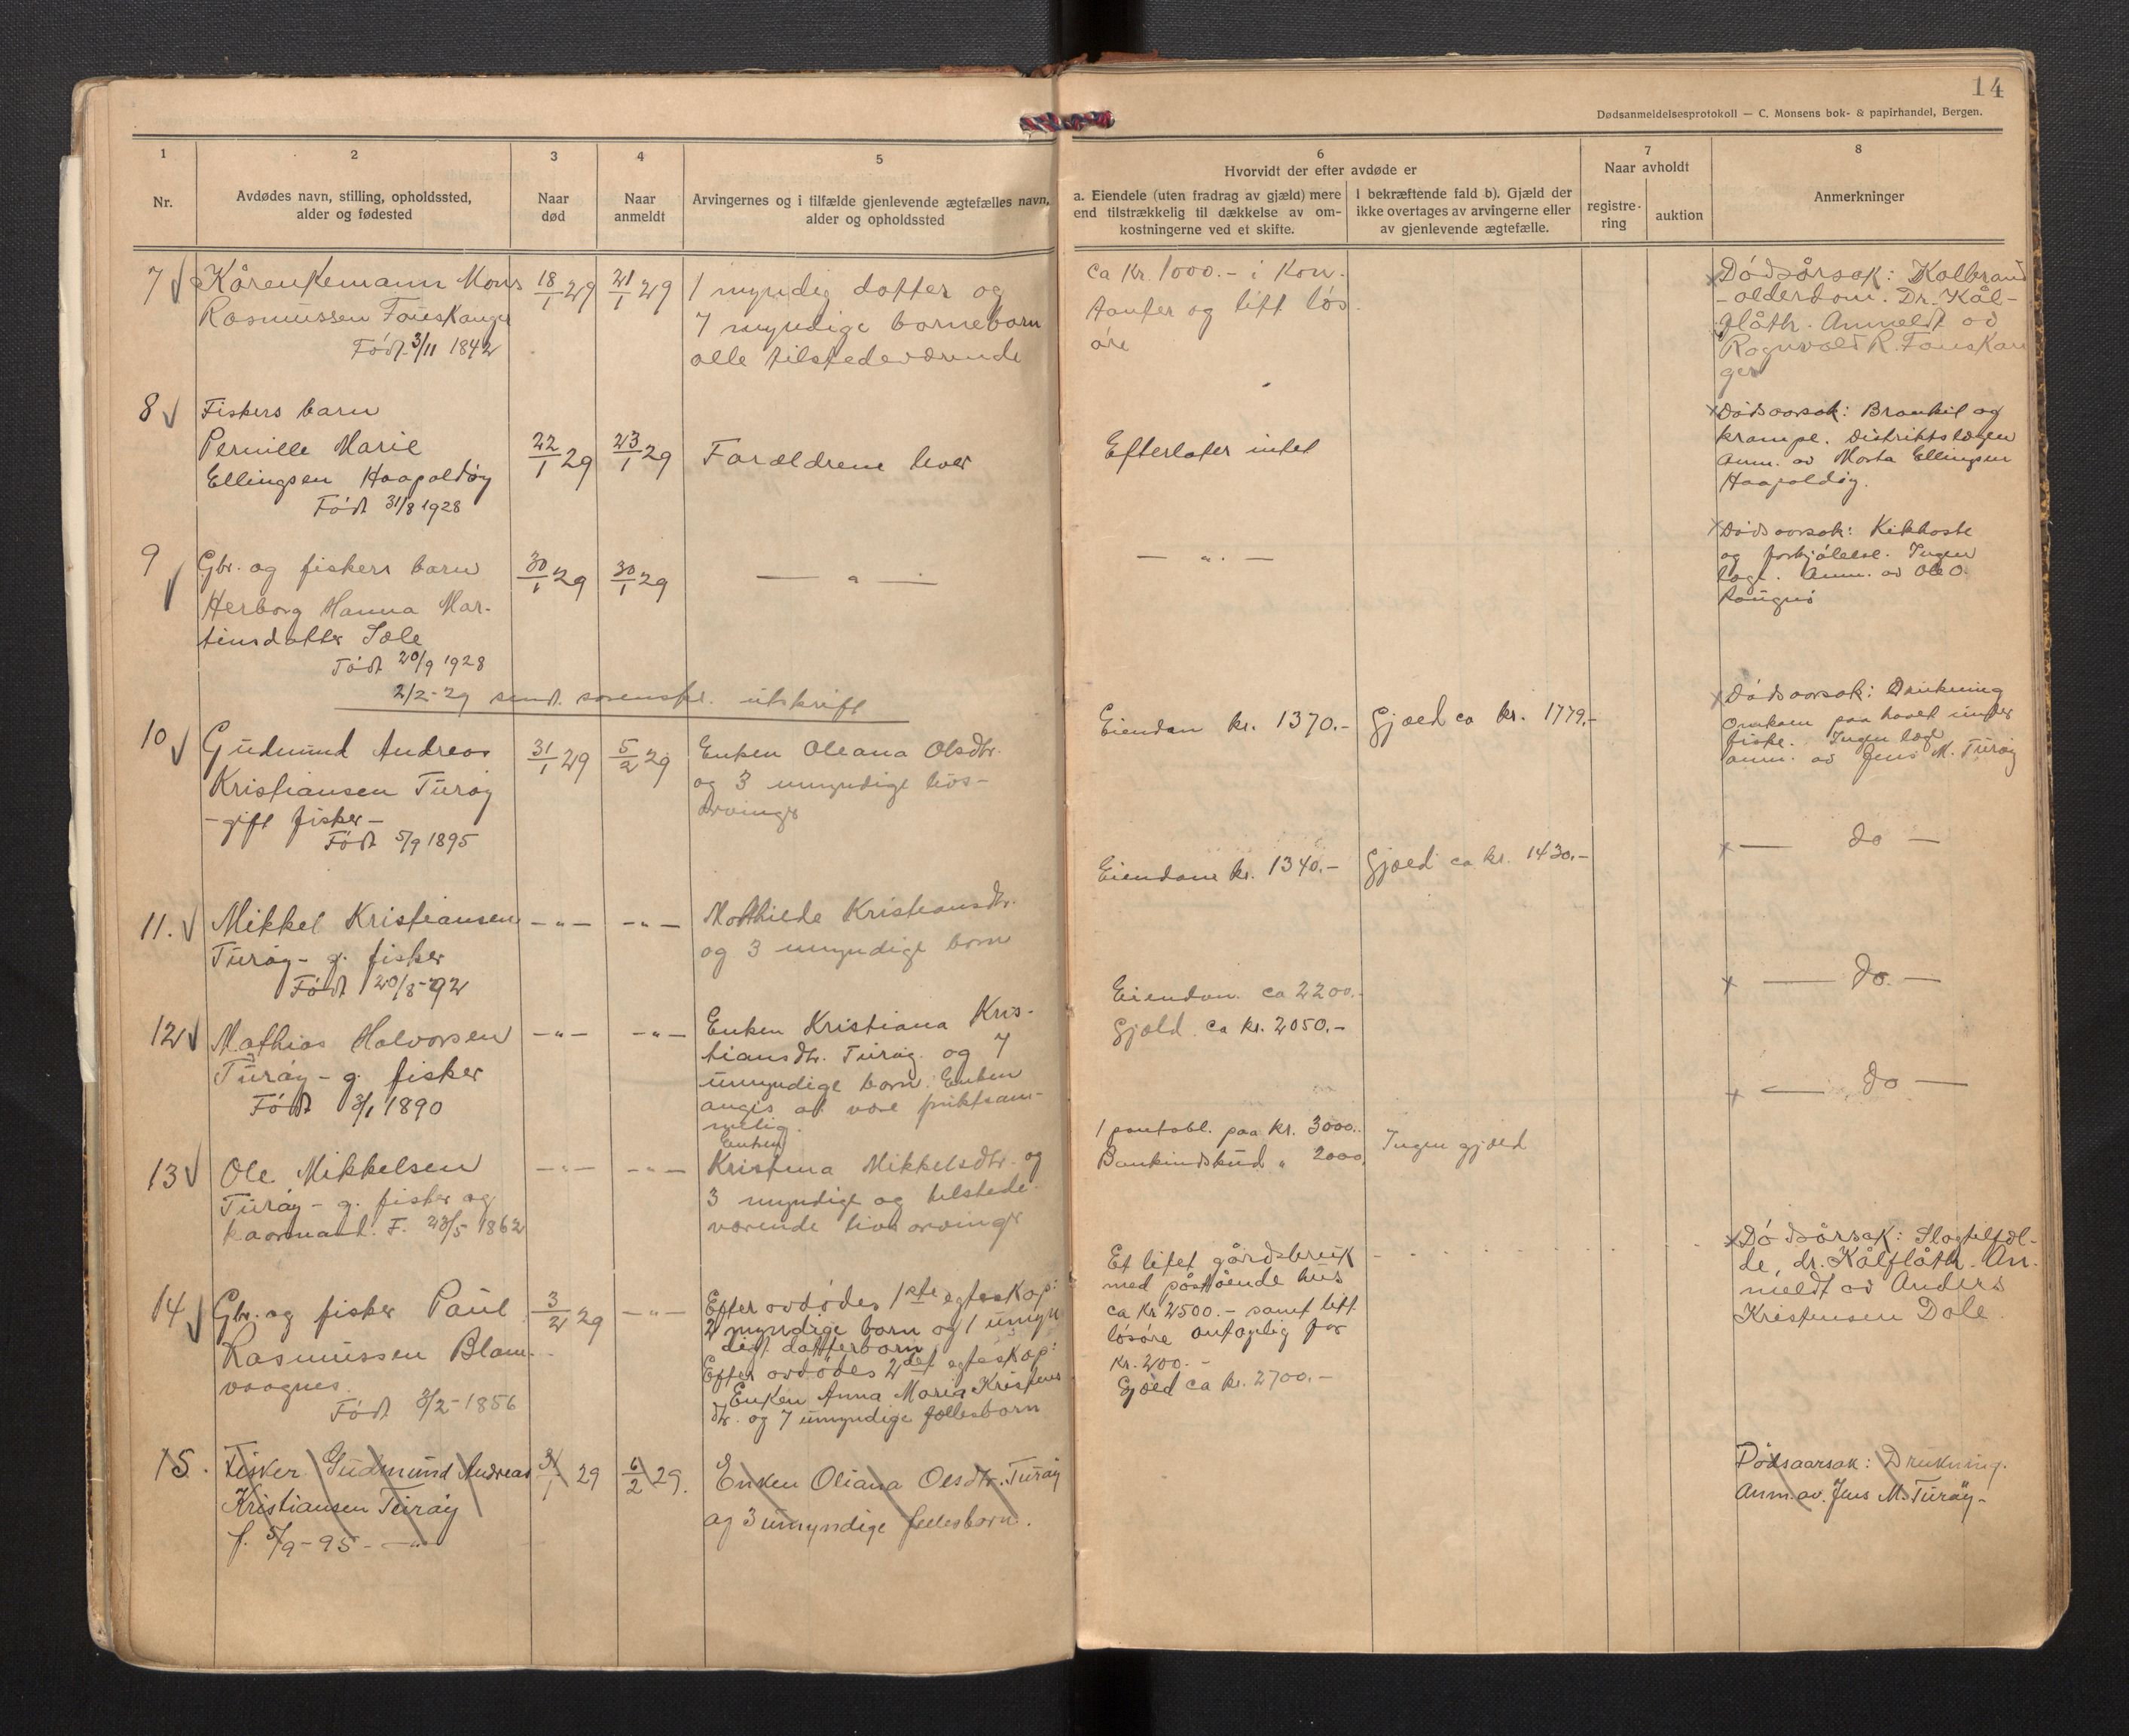 14
Dødsanmeldelsesprotokoll — C. Monsens bok- & papirhandel, Bergen.
1
Nr.
2
Avdødes navn, stilling, opholdssted,
alder og fødested
3
Naar
død
4
Naar
anmeldt
5
Arvingernes og i tilfælde gjenlevende ægtefælles navn,
alder og opholdssted
6
Hvorvidt der efter avdøde er
a. Eiendele (uten fradrag av gjæld) mere
end tilstrækkelig til dækkelse av om-
kostningerne ved et skifte.
I bekræftende fald b). Gjæld der
ikke overtages av arvingerne eller
av gjenlevende ægtefælle.
7
Naar avholdt
registre-
ring
auktion
8
Anmerkninger
7
Kårenkemann Mons
Rasmussen Fauskanger
Født 3/11 1842
18/1 29
21/1 29
1 myndig datter og
7 myndige barnebarn
alle tilstedeværende
Ca Kr. 1000.- i Kon-
tanter og litt løs
øre
Dødsårsak: Kolbrand
- olderdom. Dr. Kål-
flåth. Anmeldt av
Ragnvald R. Fauskan
ger
8
Fiskers barn
Pernille Marie
Ellingsen Haapoldøy
Født 31/8 1928
22/1 29
23/1 29
Forældrene lever
Efterlater intet
Dødsaarsak: Bronkit og
krampe. Distriktslægen
Anm. av Marta Ellingsen
Haapoldøy.
9
Gbr. og fiskers barn
Herborg Hanna Mar-
tinsdatter Sæle
Født 20/9 1928
30/1 29
30/1 29
— " —
— " —
Dødsaarsak: Kikhoste
og forkjølelse. Ingen
læge. Anm. av Ole O.
2/2-29 sendt sorenskr. utskrift
10
Gudmund Andreas
Kristiansen Turøy
- gift fisker -
Født 5/9 1895
31/1 29
5/2 29
Enken Oleana Olsdtr.
og 3 umyndige livs-
arvinger
Eiendom kr. 1370.-
Gjæld ca kr. 1779.-
Dødsaarsak: Drukning
Omkom paa havet under
fiske. Ingen læge
anm. av Jens M. Turøy
11.
Mikkel Kristiansen
Turøy - g. fisker
Født 20/8-92
- " -
- " -
Mathilde Kristiansdtr.
og 3 umyndige born
Eiendom kr. 1340.-
Gjæld ca kr. 1430.-
— do —
12
Mathias Halvorsen
Turøy - g. fisker
Født 3/1 1890
- " -
- " -
Enken Kristiana Kris-
tiansdtr. Turøy og 7
umyndige born. Enken
angis at være fruktsom-
melig.
Eiendom ca 2200.-
Gjæld ca kr. 2050.-
— do. —
13
Ole Mikkelsen
Turøy - g. fisker og
F. 23/5 1862
- " -
- " -
Enken
Kristina Mikkelsdtr. og
3 myndige og tilstede-
værende livsarvinger
1 pantobl. paa kr. 3000.-
Bankindskud " 2000.
Ingen gjæld
— do —
14
Gbr. og fisker Paul
Rasmussen Blom-
vaagnes.
Født 3/2-1856
3/2 29
- " -
Efter avdødes 1ste egteskap:
2 myndige born og 1 umyn
digt datterborn
Efter avdødes 2det egteskap:
Enken Anna Maria Kristens
dtr. og 7 umyndige fællesborn
Et litet gårdsbruk
med påstående hus
ca Kr 2500.- samt litt
løsøre antagelig for
Kr. 200.-
Gjæld ca kr. 2700.-
Dødsårsak: Slagtilfæl-
de, dr. Kålflåth. An-
meldt av Anders
Kristensen Dale
15.
Fisker Gudmund Andreas
Kristiansen Turøy
f. 5/9-95. - " -
31/1 29
6/2 29.
Enken Oliana Olsdtr. Turøy
og 3 umyndige fellesborn.
Dødsaarsak: Drukning.
Anm. av. Jens M. Turøy-